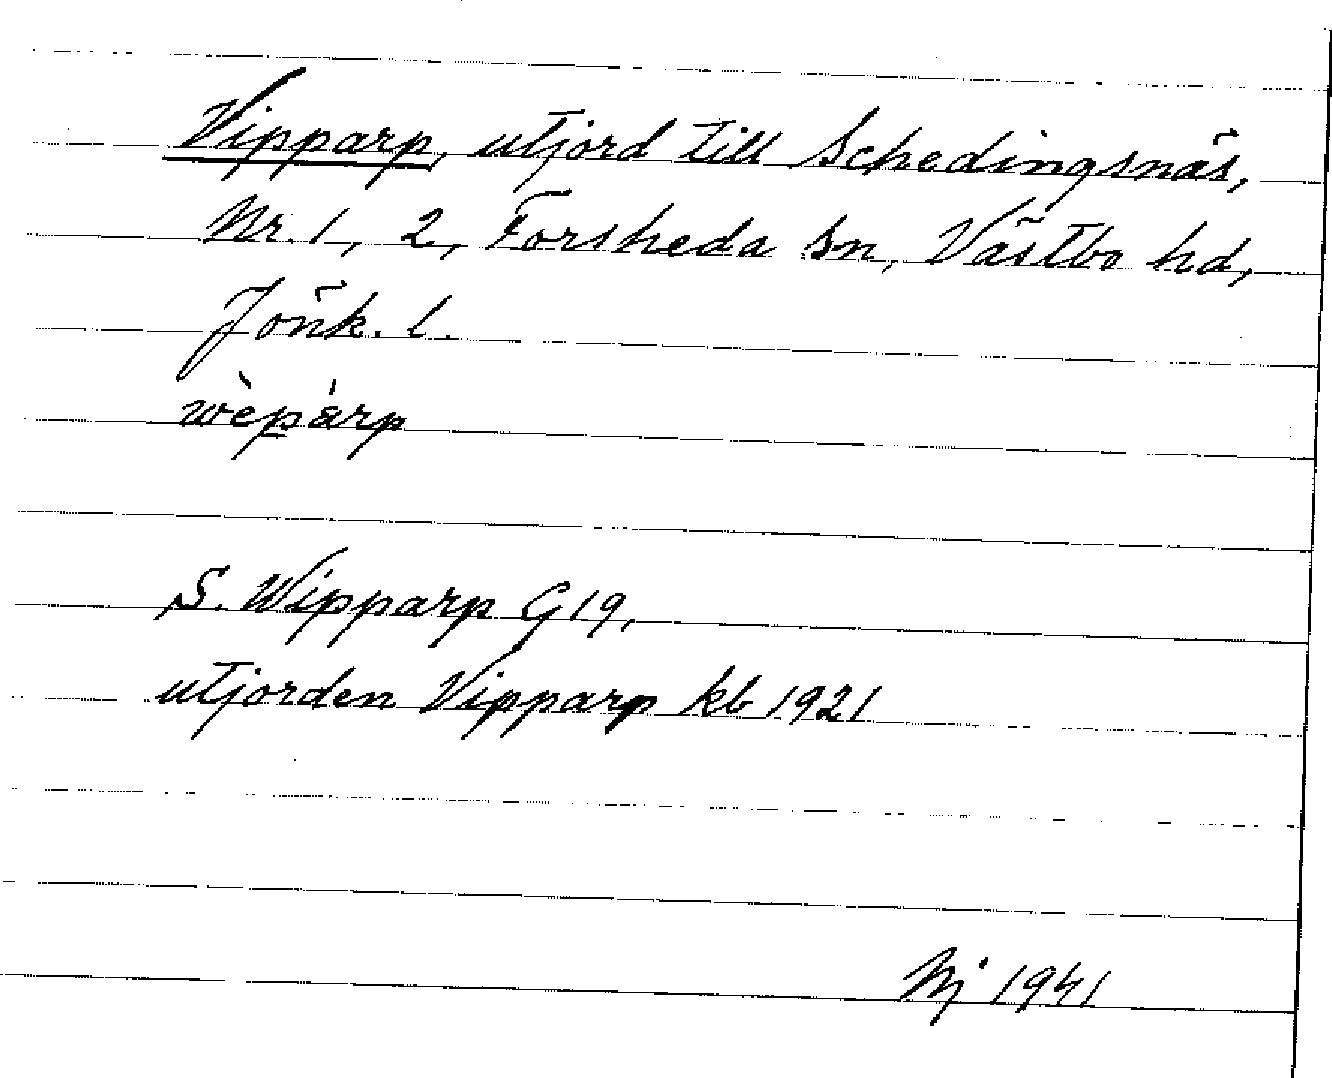 Vipparp, utjord till Schedingsnäs,
Nr. 1, 2, Forsheda sn, Västbo hd,
Jönk. l.
wèpárp
S. Wipparp G 19,
utjorden Vipparp kb 1921
1941